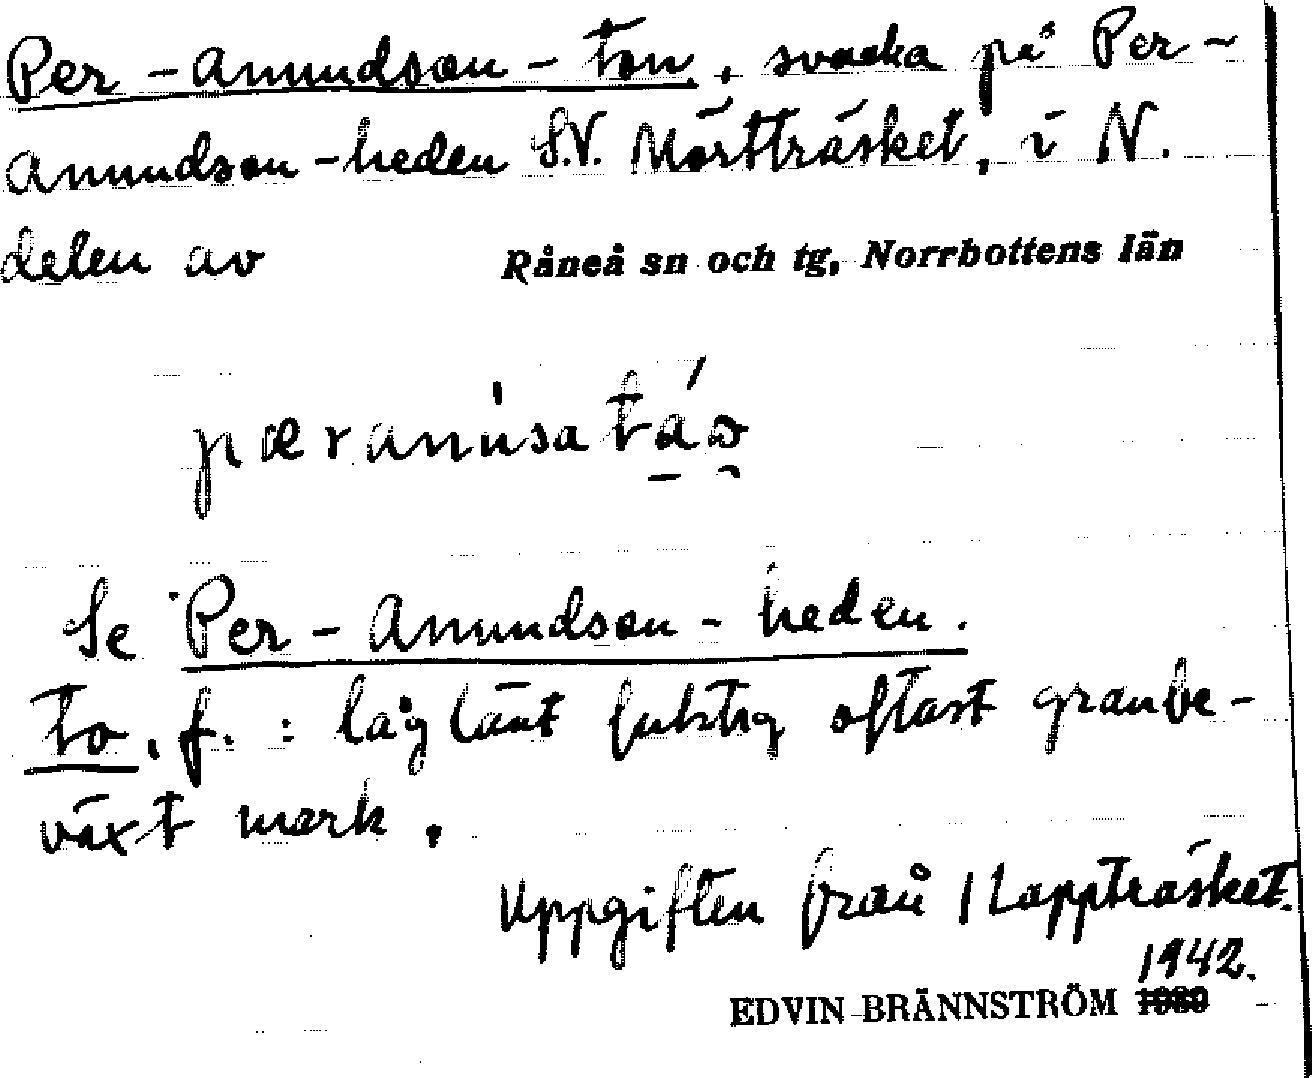 Per-Anundson-ton, svacka på Per-
Anundson-heden S.V. Mörtträsket, i N.
delen av Råneå sn och tg, Norrbottens län
Se Per-Anundson-heden.
to, f. : låglänt fuktig oftast granbe-
växt mark.
Uppgiften från 1 Lappträsket.
1942.
EDVIN BRÄNNSTRÖM